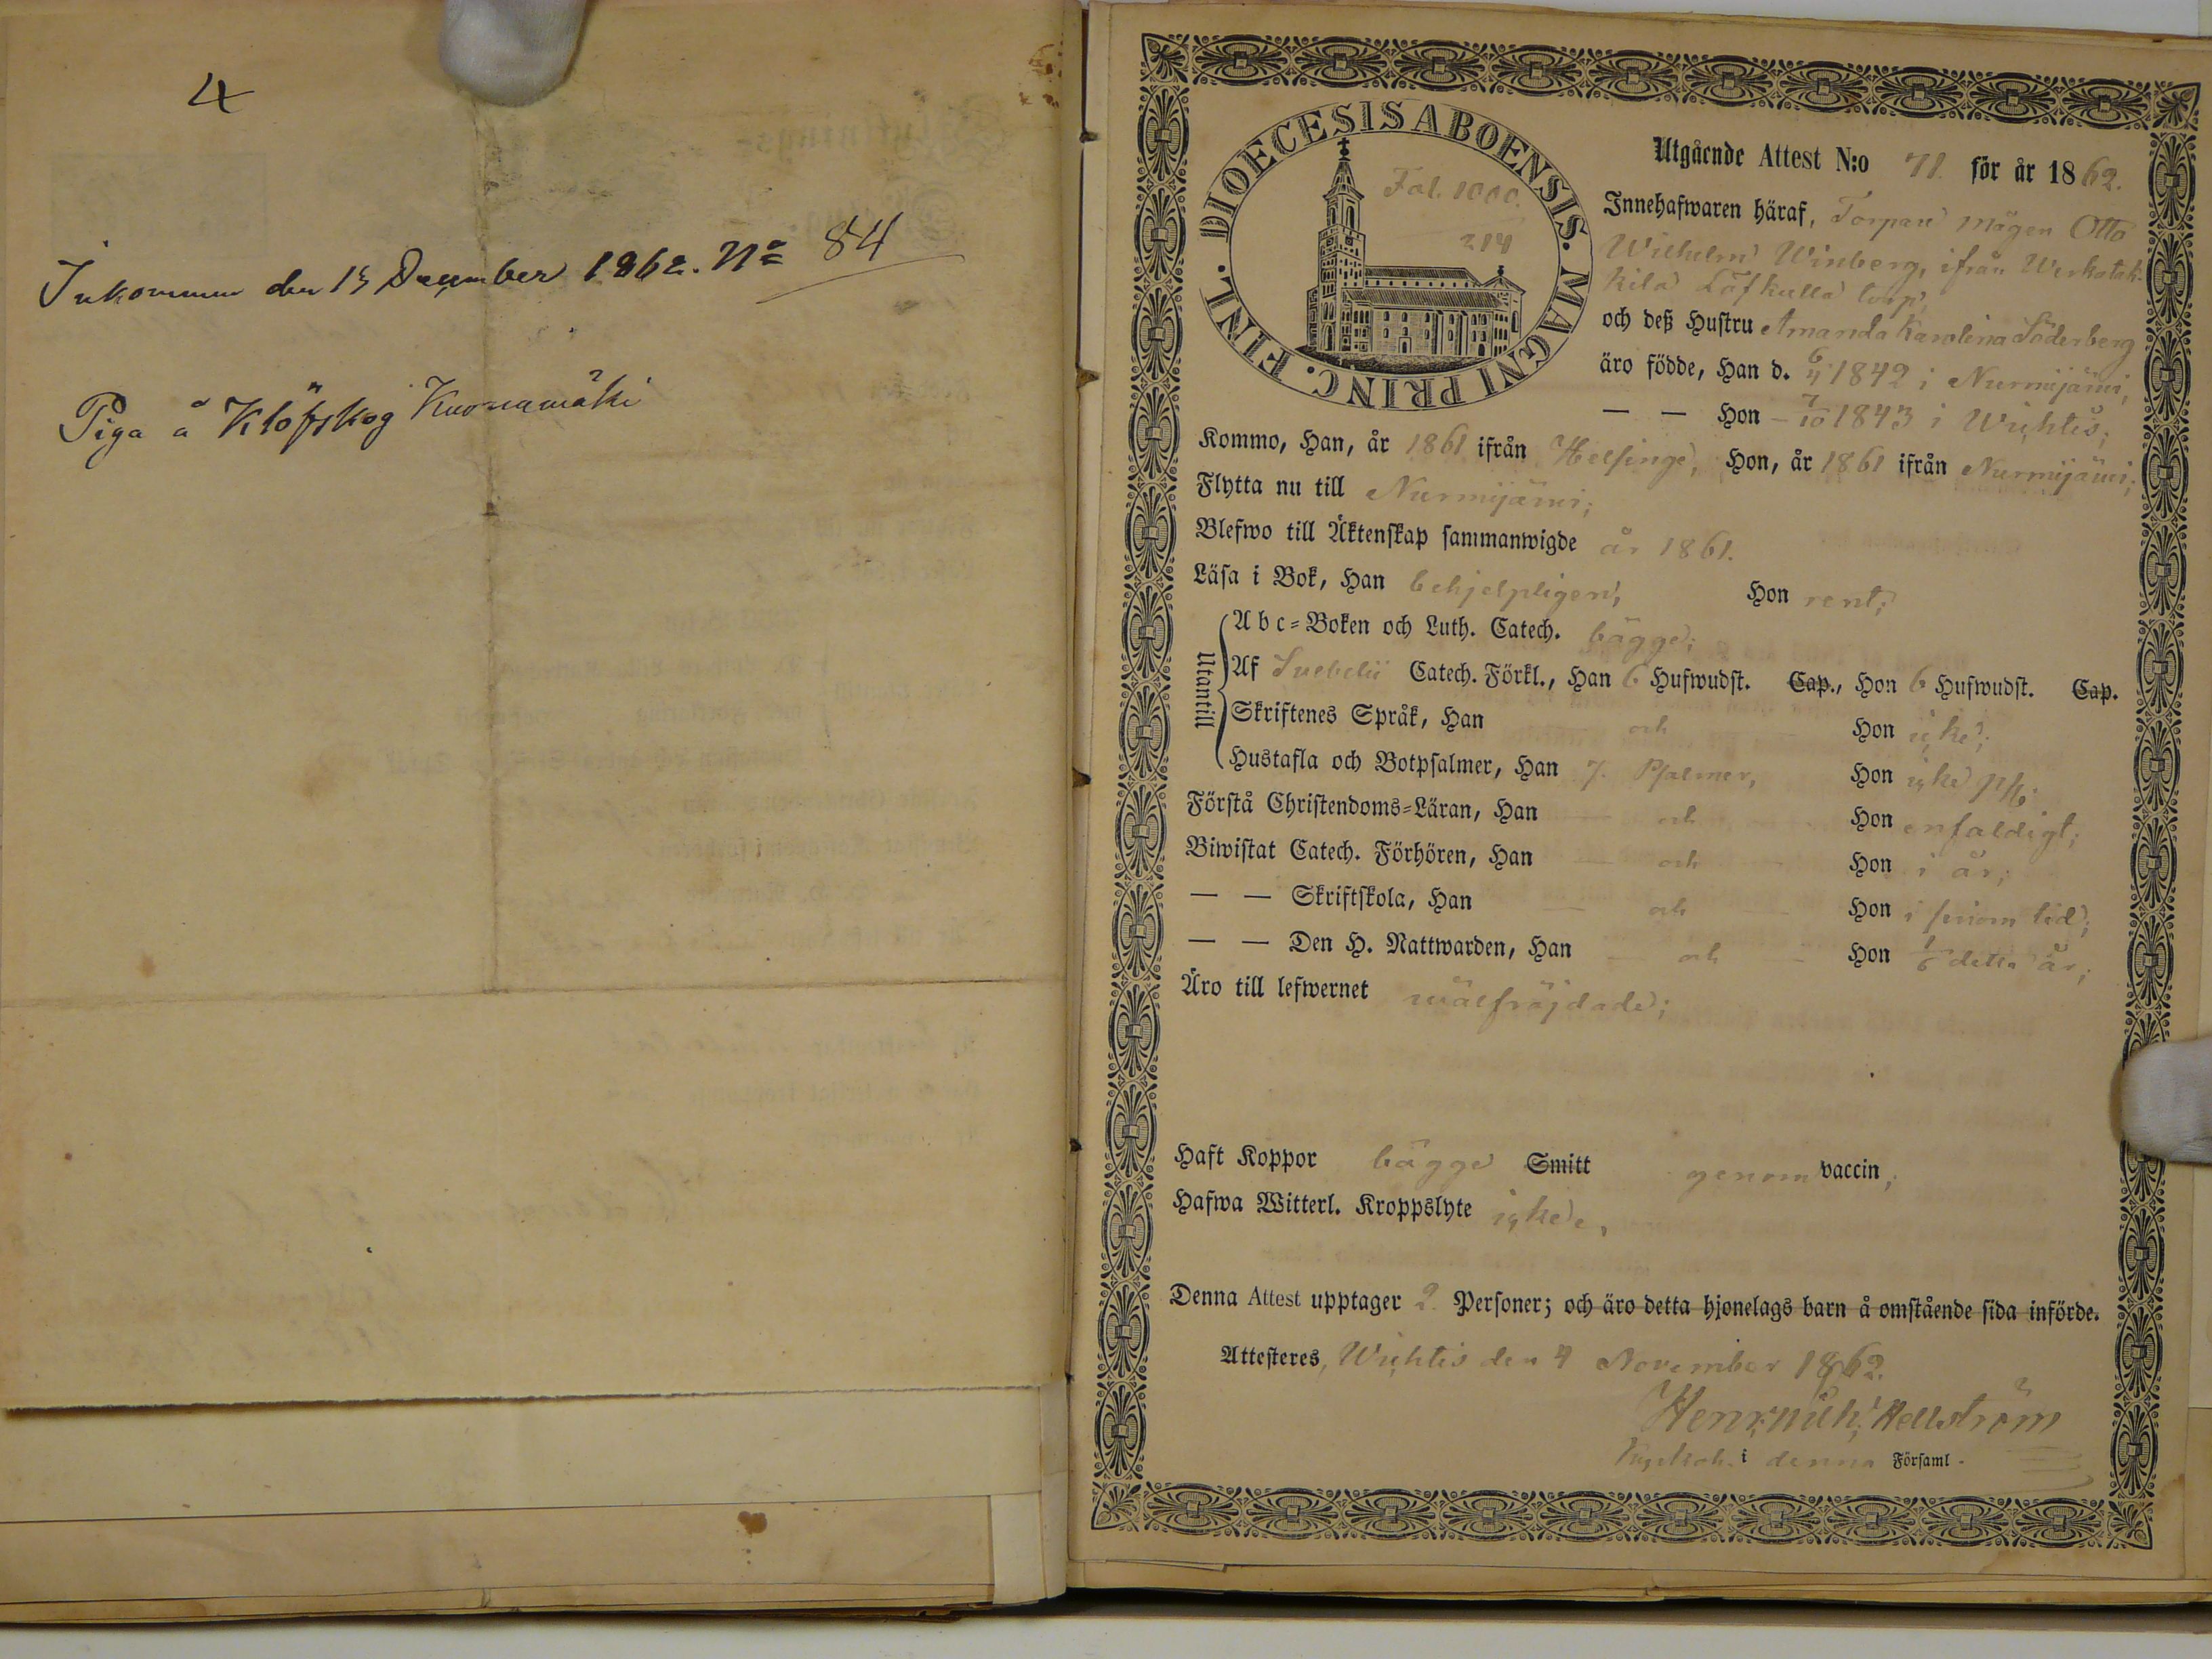 4
Inkommen den 15 December 1862. No 84
Piga å Klöfskog Kuonamäki
DIOECESIS ABOENSIS. MAGNI PRINC. FINL.
Fol. 1000.
214
Utgående Attest N:o 71. för år 1862.
Innehafwaren häraf, Torpare mågen Otto
Wilhelm Winberg, ifrån Werkatak-
kila Löfkulla torp,
och deß Hustru Amanda Karolina Söderberg
äro födde, Han d. 6/4 1842 i Nurmijärwi,
— — Hon – 7/10 1843 i Wichtis;
Kommo, Han, år 1861 ifrån Helsinge, Hon, år 1861 ifrån Nurmijärwi;
Flytta nu till Nurmijärwi;
Blefwo till Äktenskap sammanwigde år 1861.
Läsa i Bok, Han behjelpligen, Hon rent;
Utantill
Abc-Boken och Luth. Catech. bägge;
Af Svebelii Catech. Förkl., Han 6 Hufwudst. Cap., Hon 6 Hufwudst. Cap.
Skriftenes Språk, Han och Hon icke;
Hustafla och Botpsalmer, Han 7. Psalmer, Hon icke
Förstå Christendoms-Läran, Han — och — Hon enfaldigt;
Biwistat Catech. Förhören, Han — och — Hon i år;
— — Skriftskola, Han — och — Hon i sinom tid;
— — Den H. Nattwarden, Han — och — Hon 1/6 detta år;
Äro till lefwernet wälfräjdade;
Haft Koppor bägge Smitt genom vaccin,
Hafwa Witterl. Kroppslyte icke,
Denna Attest upptager 2 Personer; och äro detta hjonelags barn å omstående sida införde.
Attesteres, Wichtis den 4 November 1862.
Henr. Mich. Hellström
i denna Församl.